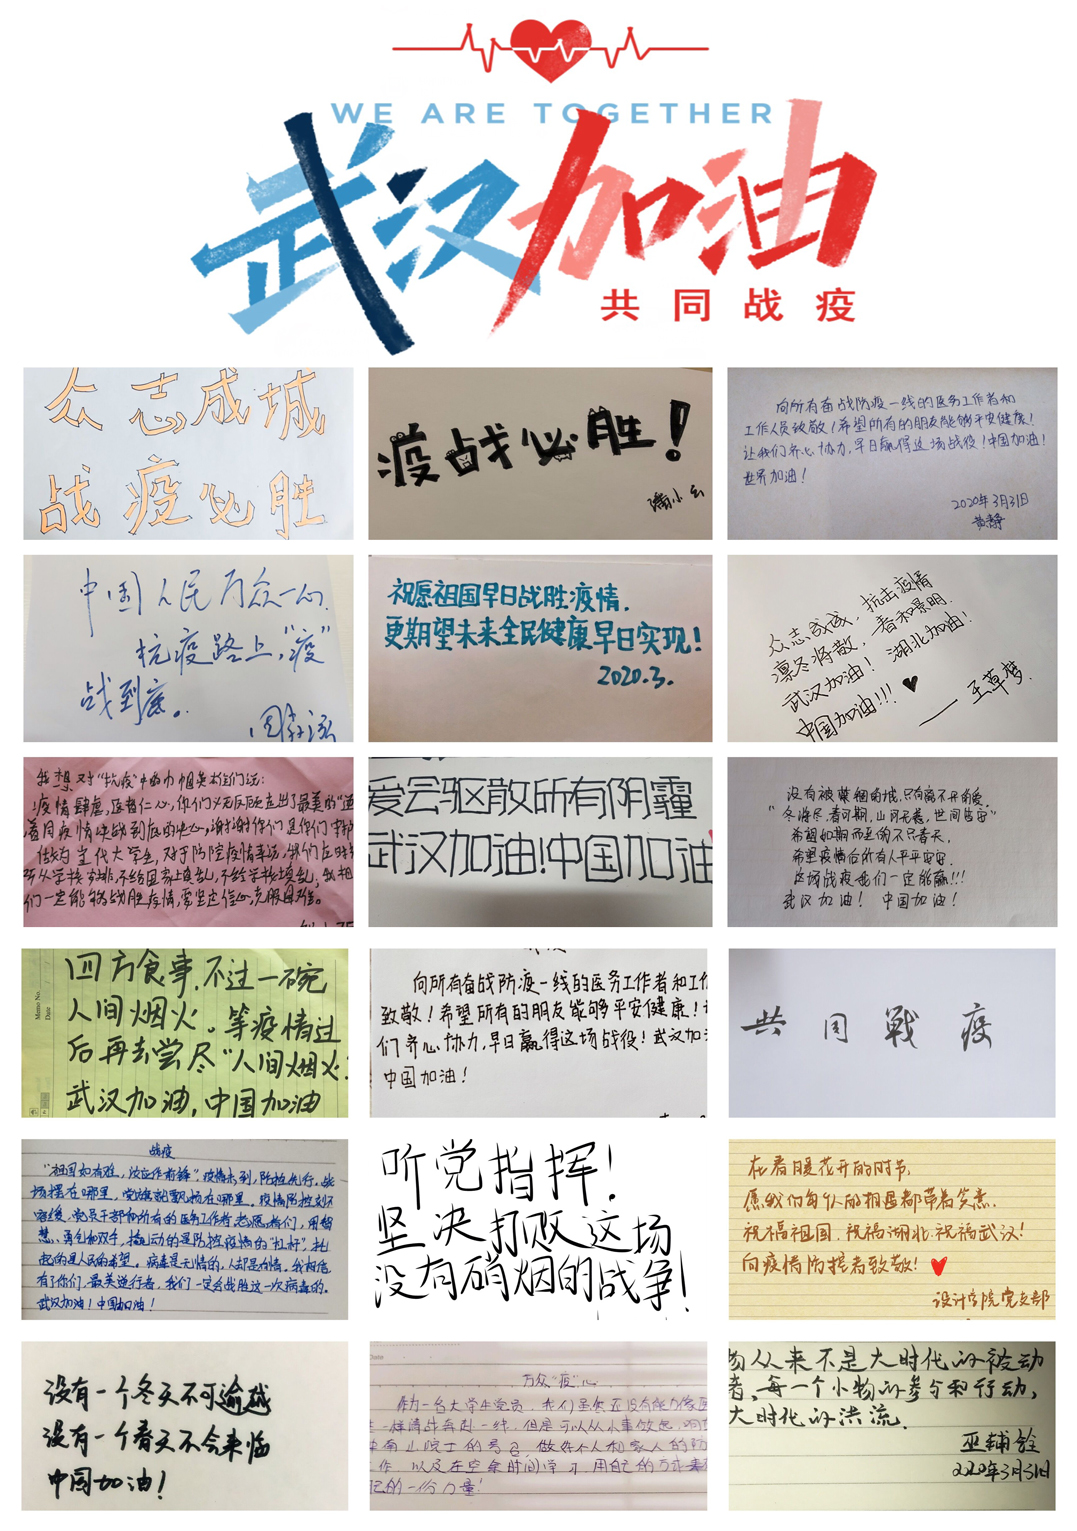 WE ARE TOGETHER
武汉加油
共同战疫
众志成城
战疫必胜
疫战必胜!
潘小云
向所有奋战防疫一线的医务工作者和
工作人员致敬!希望所有的朋友能够平安健康!
让我们齐心协力,早日赢得这场战役!中国加油!
世界加油!
2020年3月31日
黄静
中国人民万众一心.
抗疫路上,“疫”
战到底。
祝愿祖国早日战胜疫情.
更期望未来全民健康早日实现!
2020.3.
众志成城,抗击疫情
凛冬将散,春和景明.
武汉加油! 湖北加油!
中国加油!!! ♥
——王草梦.
我想对“抗疫”中的巾帼英雄们说:
疫情肆虐,医者仁心,你们义无反顾
着同疫情决战到底的决心,谢谢你们
作为当代大学生,对于防控疫情来说,我们应
从学校安排,不给国家上添乱,不给学校添乱,我相
们一定能够战胜疫情,要坚定信心,克服困难。
爱会驱散所有阴霾
武汉加油!中国加油
没有被禁锢的城,只有离不开的爱.
“冬将尽,春可期,山河无恙,世间皆安”
希望如期而至的不只春天.
希望疫情后所有人平平安安.
这场战疫我们一定能赢!!!
武汉加油! 中国加油!
四方食事,不过一碗
人间烟火。等疫情过
后再去尝尽“人间烟火
武汉加油,中国加油
Memo No.
Date
向所有奋战防疫一线的医务工作者和工作
致敬!希望所有的朋友能够平安健康!让
们齐心协力,早日赢得这场战役!武汉加
中国加油!
共同戰疫
战疫
“祖国如有难,汝应作前锋”,疫情未到,防控先行。战
场摆在哪里,党旗就飘扬在哪里。疫情防控刻不
容缓,党员干部和所有的医务工作者,志愿者们,用智
慧、勇气和双手,撬动的是防控疫情的“杠杆”,托
起的是人民的希望。病毒是无情的,人却是有情。我相信
有了你们,最美逆行者,我们一定会战胜这一次病毒的。
武汉加油!中国加油!
听党指挥!
坚决打败这场
没有硝烟的战争!
在春暖花开的时节,
愿我们每个人的相遇都带着笑意.
祝福祖国,祝福湖北,祝福武汉!
向疫情防控者致敬! ♥
设计学院党支部
没有一个冬天不可逾越
没有一个春天不会来临
中国加油!
Date
万众“疫”心
作为一名大学生党员,我们虽然还没有能力像医
一样请战奔赴一线,但是可以从小事做起,响应
南山院士的号召,做好个人和家人的防
工作,以及在空余时间学习,用自己的方式来
己的一份力量!
物从来不是大时代的被动
者,每一个小物的参与和行动,
大时代的洪流.
巫辅铨
2020年3月31日